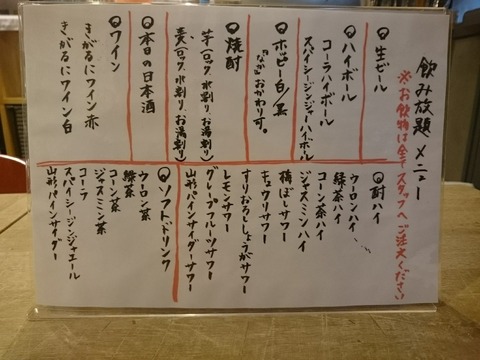 飲み放題メニュー
※お飲物は全てスタッフへご注文ください
◎生ビール
◎ハイボール
コーラハイボール
スパイシージンジャーハイボール
◎ホッピー白/黒
「なか」おかわりす。
◎焼酎
芋(ロック、水割り、お湯割り)
麦(ロック、水割り、お湯割り)
◎本日の日本酒
◎ワイン
きがるにワイン赤
きがるにワイン白
◎酎ハイ
ウーロンハイ
緑茶ハイ
コーン茶ハイ
ジャスミンハイ
梅ぼしサワー
キュウリサワー
すりおろししょうがサワー
レモンサワー
グレープフルーツサワー
山形パインサイダーサワー
◎ソフトドリンク
ウーロン茶
緑茶
コーン茶
ジャスミン茶
コーラ
スパイシージンジャエール
山形パインサイダー